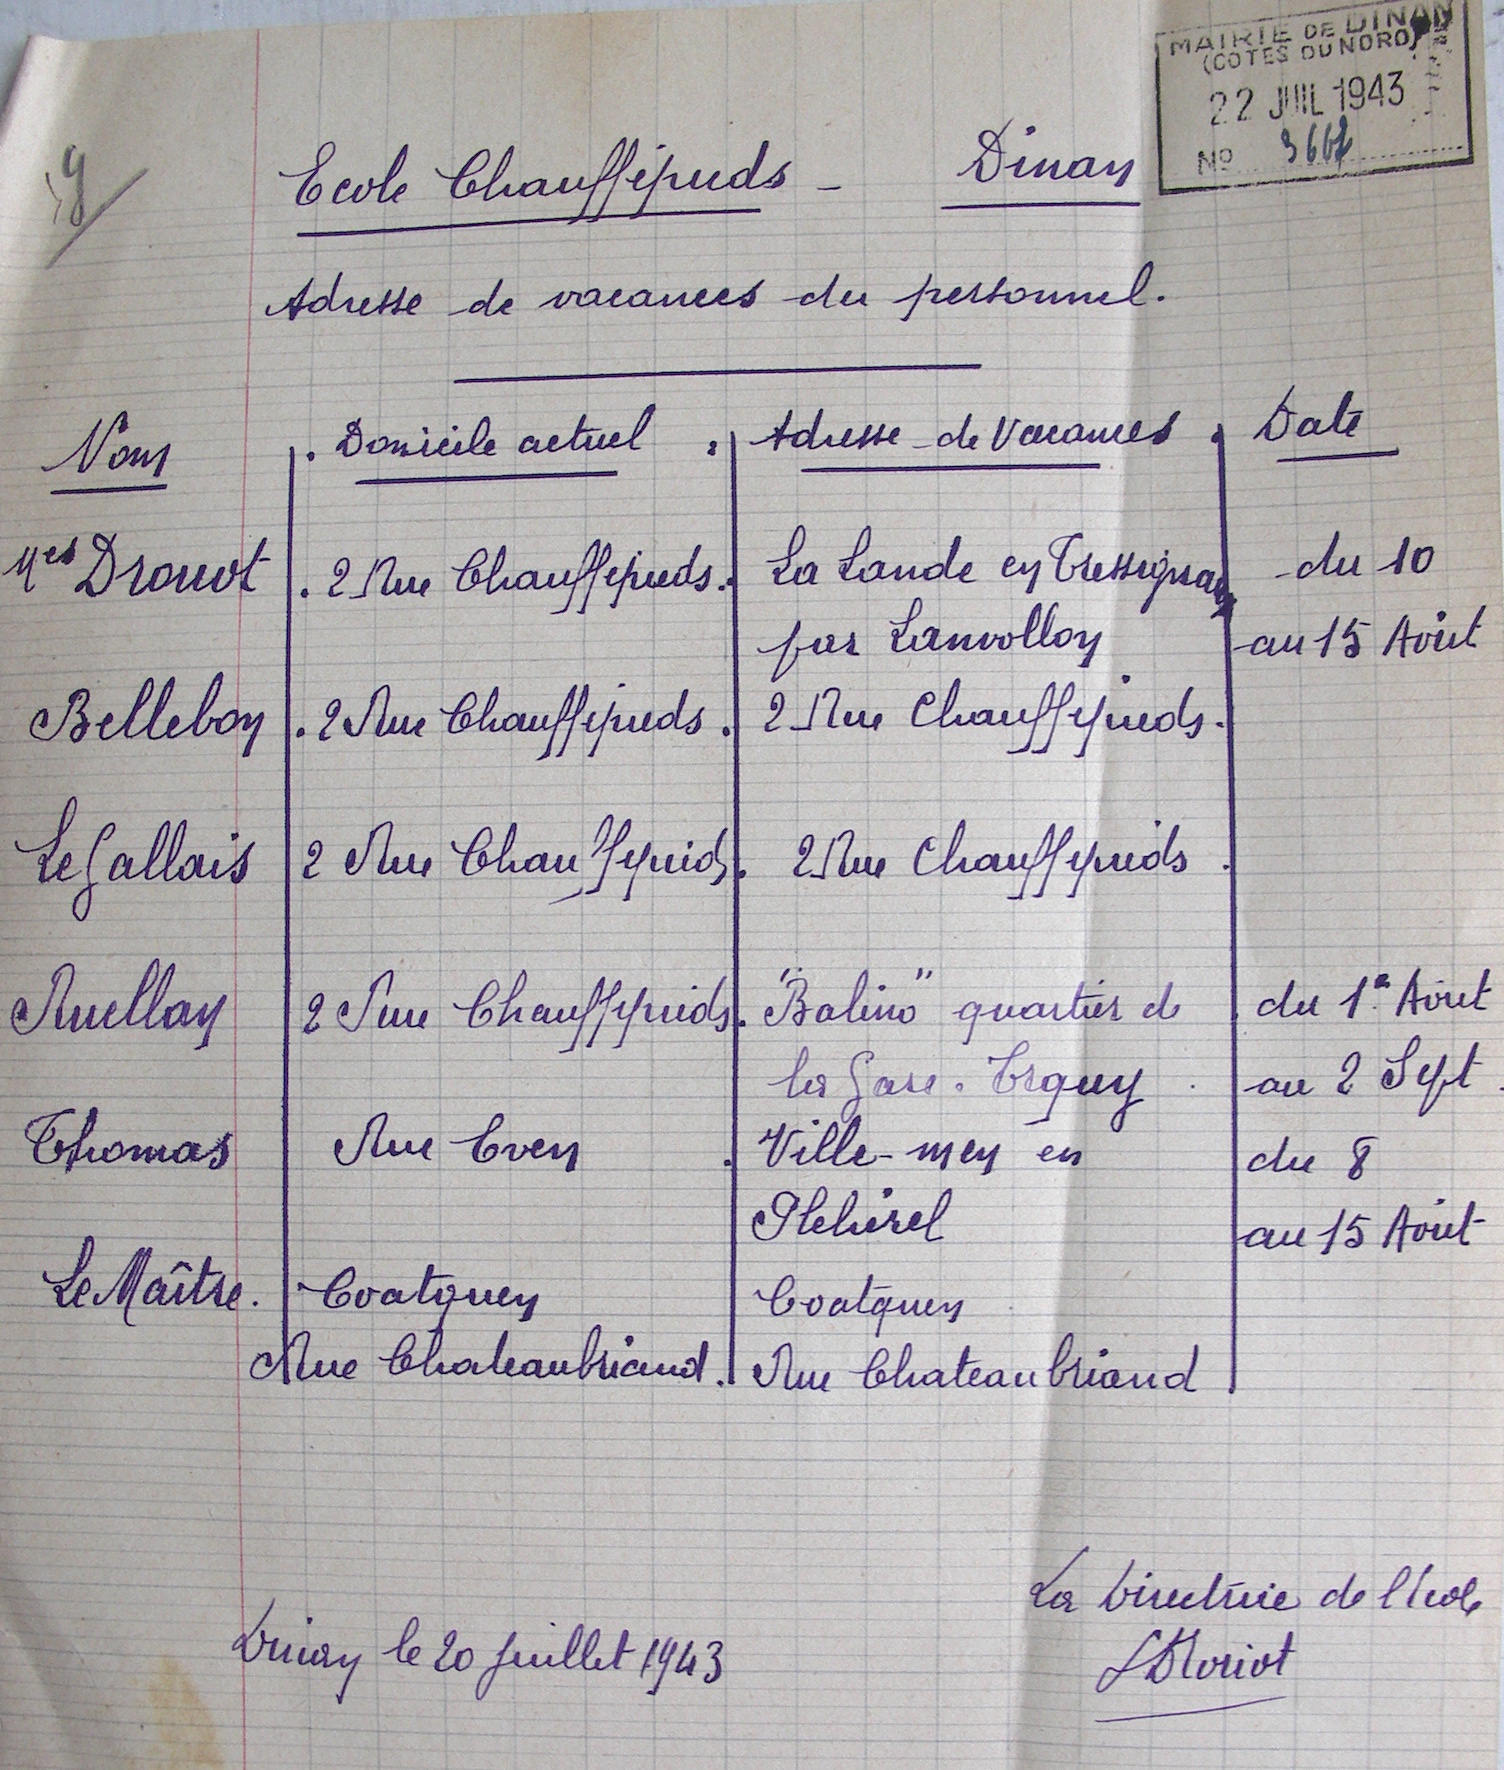 MAIRIE DE DINAN
(COTES DU NORD)
22 JUIL 1943
No 3667
Ecole Chauffepieds - Dinan
Adresse de vacances du personnel.
Noms . Domicile actuel . Adresse de Vacances . Date
Mes Drouot . 2 Rue Chauffepieds. La Lande en Tressignaux du 10
par Lanvollon au 15 Août
Bellebon . 2 Rue Chauffepieds . 2 Rue Chauffepieds.
Le Gallais 2 Rue Chauffepieds. 2 Rue Chauffepieds .
Ruellan 2 Rue Chauffepieds. "Balino" quartier de du 1er Août
la Gare. Erquy . au 2 Sept.
Thomas Rue Even . Ville-men en du 8
Pléhérel au 15 Août
Le Maître. Coatquen Coatquen
Rue Chateaubriand. Rue Chateaubriand
La Directrice de l'Ecole
Dinan le 20 Juillet 1943